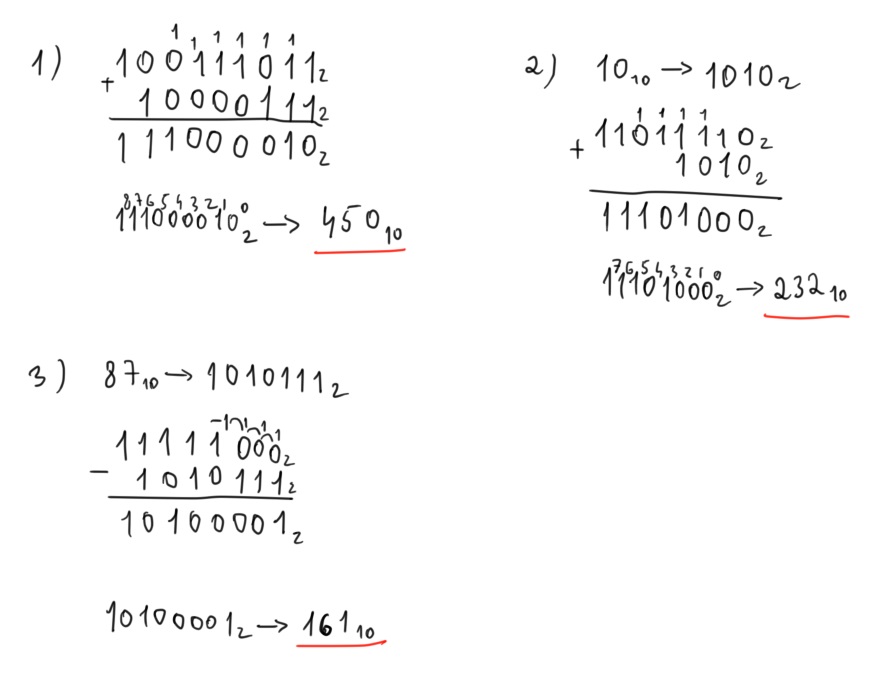 1)
1 1 1 1 1 1
100111011₂
+
10000111₂
111000010₂
8 7 6 5 4 3 2 1 0
111000010₂ → 450₁₀
2) 10₁₀ → 1010₂
1 1 1 1
+ 11011110₂
1010₂
11101000₂
7 6 5 4 3 2 1 0
11101000₂ → 232₁₀
3) 87₁₀ → 1010111₂
-1 1 1 1
11111000₂
- 1010111₂
10100001₂
10100001₂ → 161₁₀